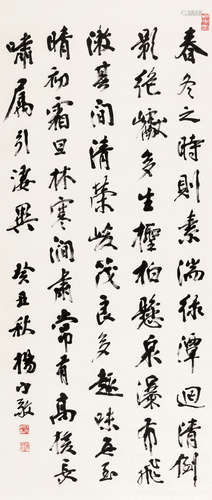 春冬之時則素湍綠潭迴清倒
影絕巘多生檉柏懸泉瀑布飛
漱其間清榮峻茂良多趣味每至
晴初霜旦林寒澗肅常有高猿長
嘯屬引淒異 癸丑秋楊守敬